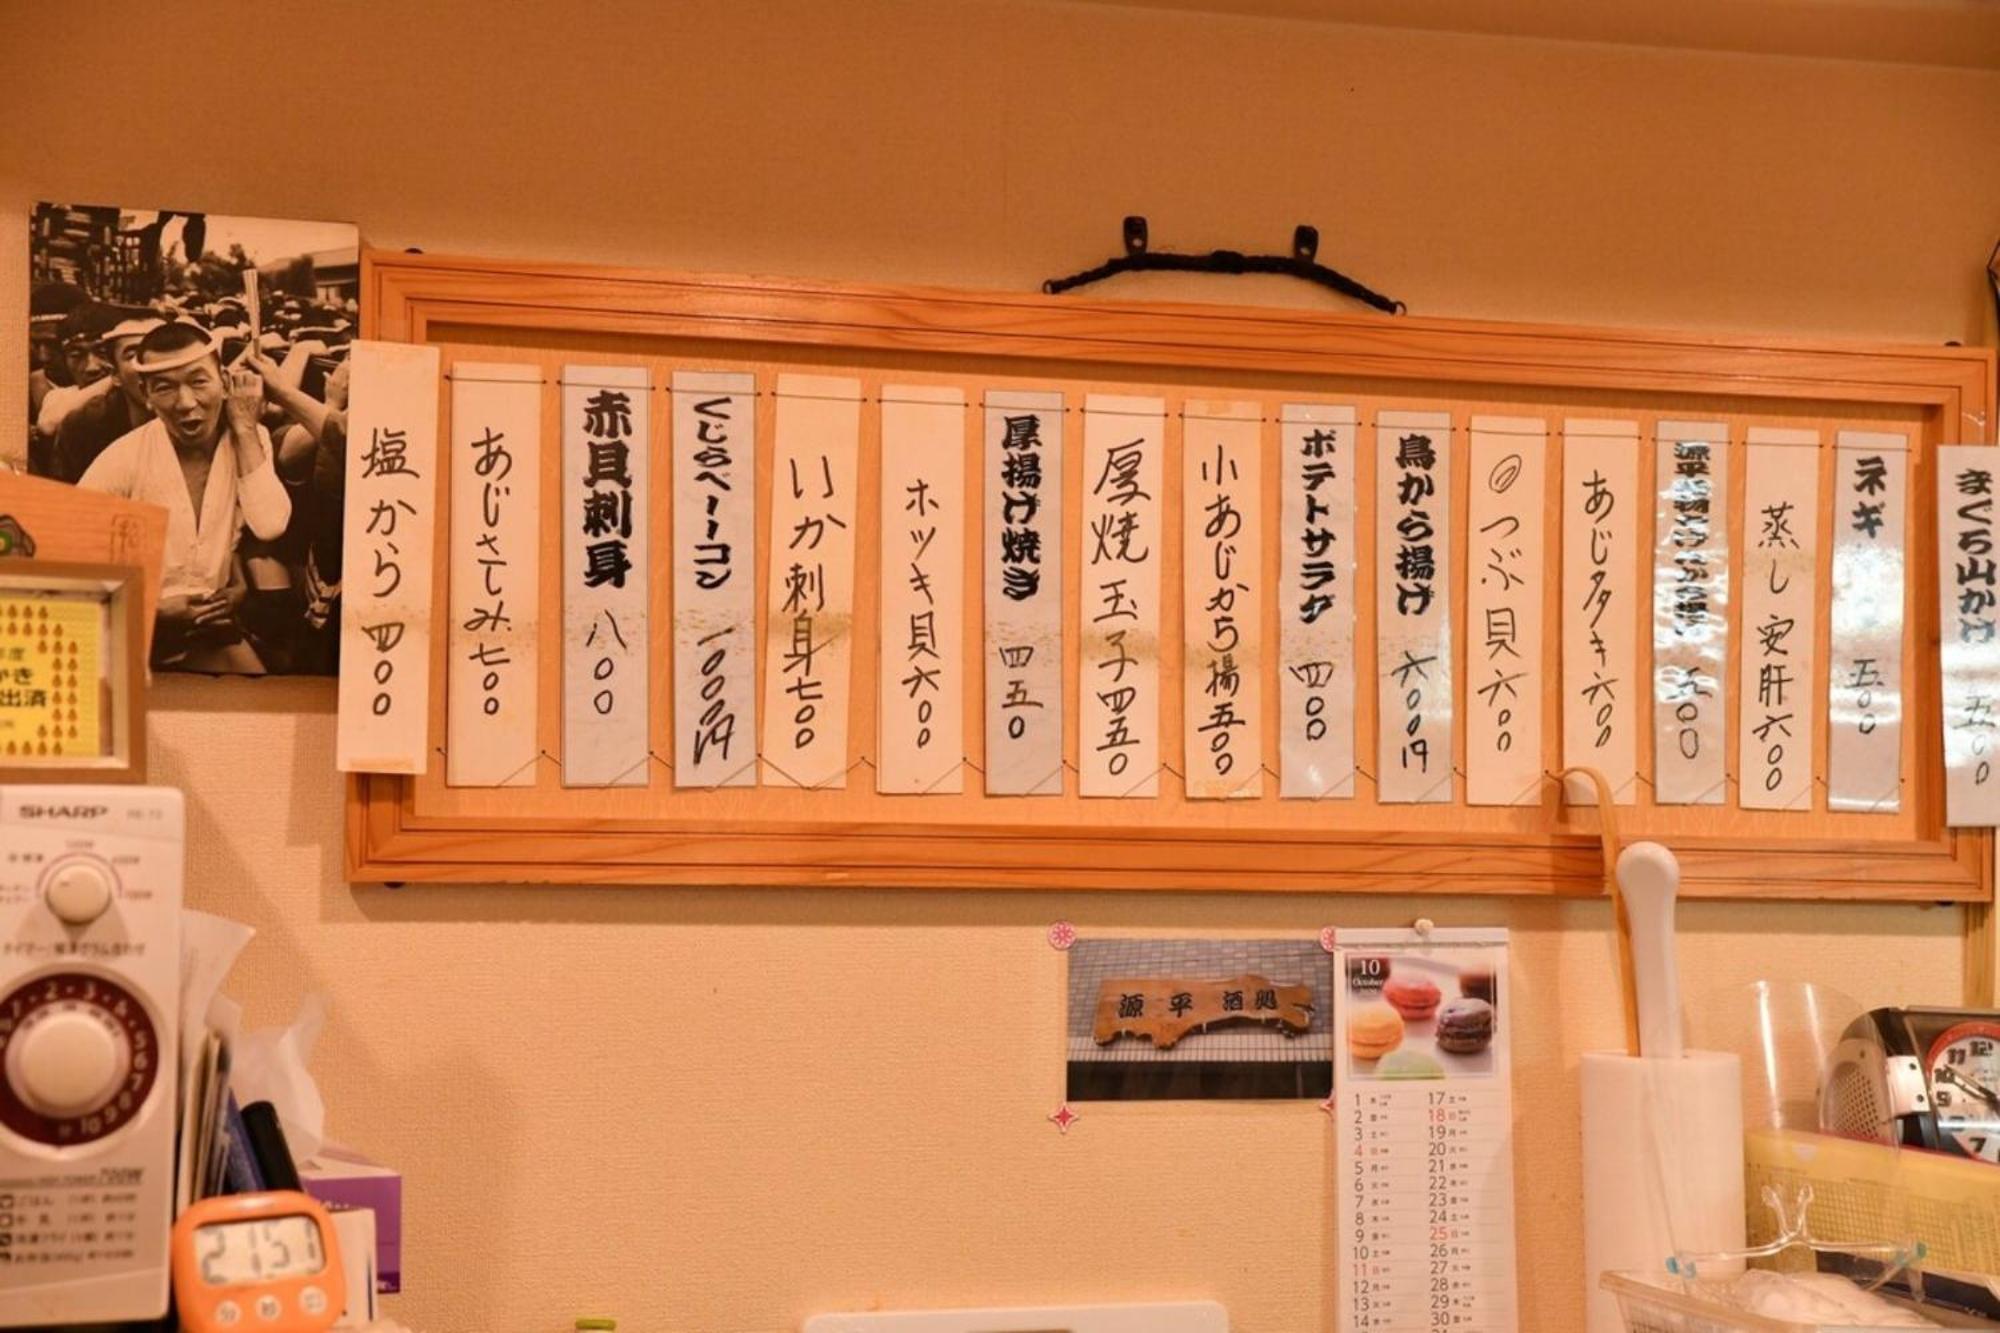 まぐろ山かけ 五〇〇
ネギ 五〇〇
蒸し安肝六〇〇
あじタタキ六〇〇
◎つぶ貝六〇〇
鳥から揚げ 六〇〇円
ポテトサラダ 四〇〇
小あじから揚五〇〇
厚焼玉子四五〇
厚揚げ焼き 四五〇
ホッキ貝六〇〇
いか刺身七〇〇
くじらベーコン 一〇〇〇円
赤貝刺身 八〇〇
あじさしみ七〇〇
塩から 四〇〇
出済
SHARP
700W
21:51
源平酒処
10
October
1
2
3
4
5
6
7
8
9
10
11
12
13
14
17
18
19
20
21
22
23
24
25
26
27
28
29
30